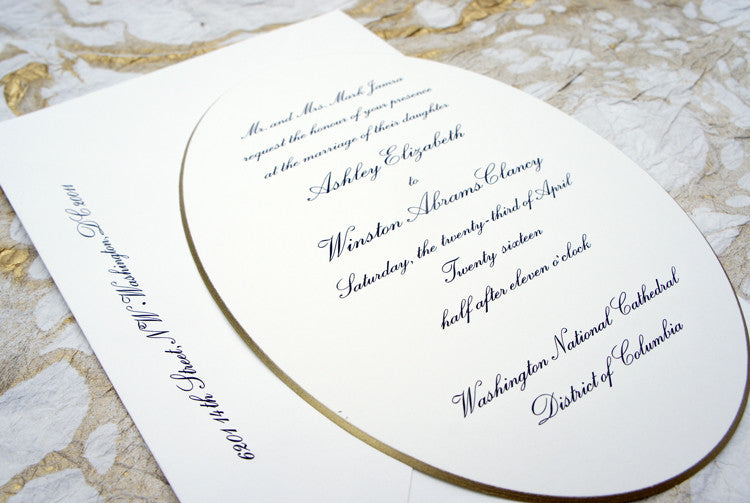 Mr. and Mrs. Mark Jamra
request the honour of your presence
at the marriage of their daughter
Ashley Elizabeth
to
Winston Abrams Clancy
Saturday, the twenty-third of April
Twenty sixteen
half after eleven o'clock
Washington National Cathedral
District of Columbia
6201 14th Street, NW • Washington, DC 20011